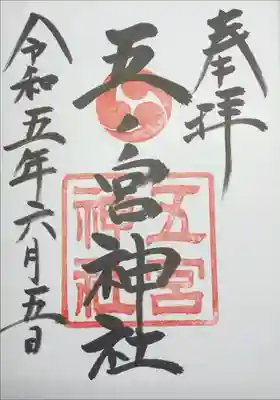 奉拝
五ノ宮神社
五宮
神社
令和五年六月五日